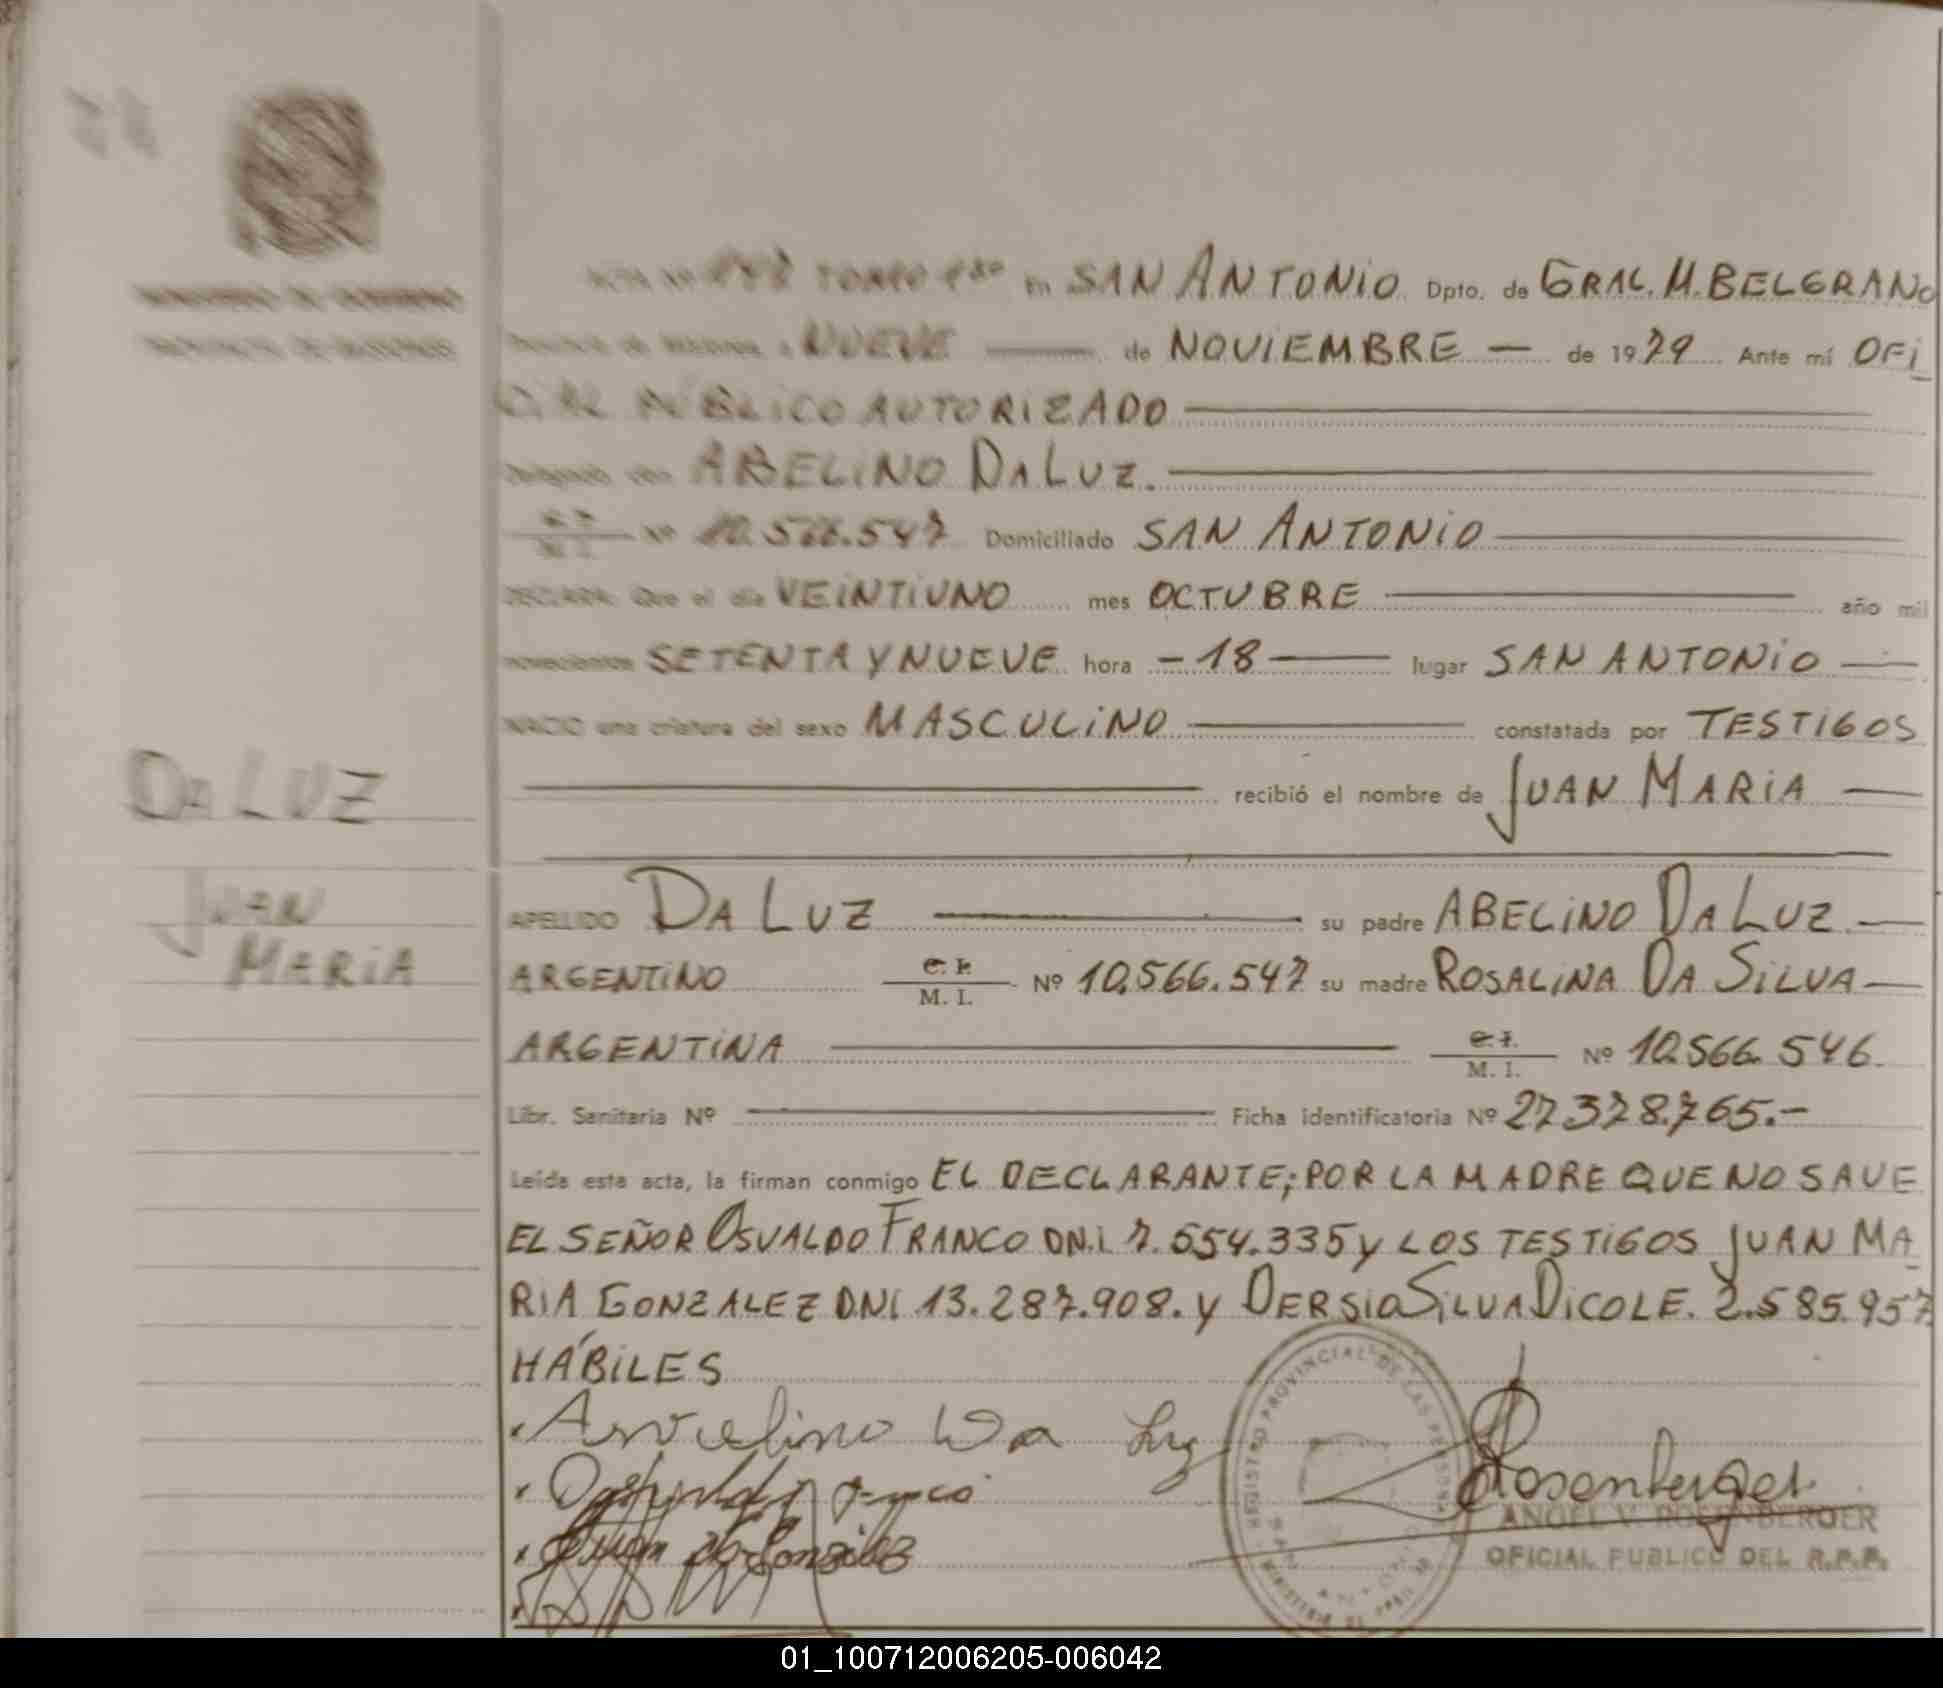 MINISTERIO DE GOBIERNO
PROVINCIA DE MISIONES
ACTA Nº TOMO 1º en SAN ANTONIO Dpto. de GRAL. M. BELGRANO
Provincia de Misiones a NUEVE — de NOVIEMBRE — de 1979 Ante mí OFI
CIAL PÚBLICO AUTORIZADO
ABELINO DA LUZ.
Nº 10.566.547 Domiciliado SAN ANTONIO
DECLARA: Que el día VEINTIUNO mes OCTUBRE año mil
novecientos SETENTA Y NUEVE hora -18- lugar SAN ANTONIO
NACIO una criatura del sexo MASCULINO constatada por TESTIGOS
recibió el nombre de JUAN MARIA
DA LUZ
JUAN
MARIA
APELLIDO DA LUZ su padre ABELINO DA LUZ
ARGENTINO C. I. M. I. Nº 10.566.547 su madre ROSALINA DA SILVA
ARGENTINA C. I. M. I. Nº 10.566.546
Libr. Sanitaria Nº Ficha identificatoria Nº 27.378.765.-
Leída esta acta, la firman conmigo EL DECLARANTE; POR LA MADRE QUE NO SAVE
EL SEÑOR OSVALDO FRANCO DN.I 7.554.335 y LOS TESTIGOS JUAN MA
RIA GONZALEZ D.N.I 13.287.908. y DERSIO SILVA DICOL E. 2.585.957
HÁBILES
Da Luz
Rosenberger
REGISTRO PROVINCIAL DE LAS PERSONAS
ANGEL V. ROSENBERGER
OFICIAL PUBLICO DEL R.P.P.
01_100712006205-006042